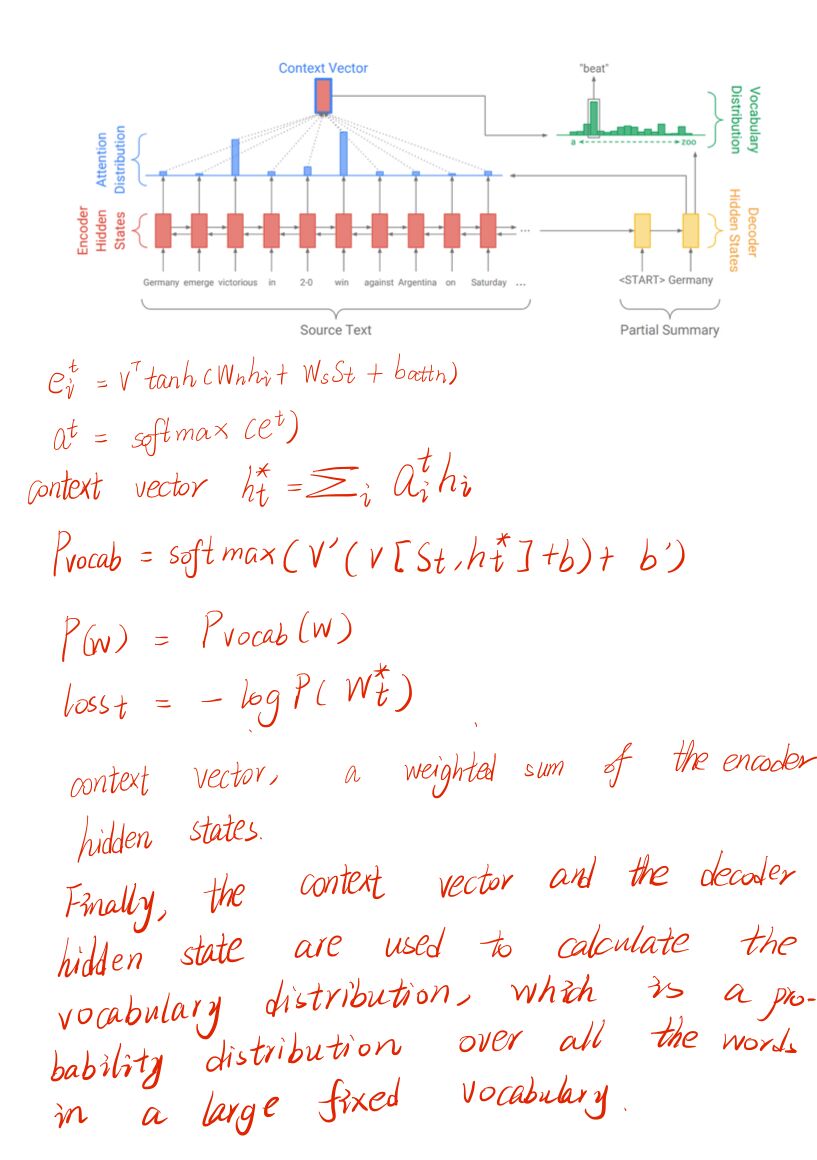 Context Vector
"beat"
Vocabulary
Distribution
a
zoo
Attention
Distribution
Encoder
Hidden
States
Decoder
Hidden States
...
Germany emerge victorious in 2-0 win against Argentina on Saturday ...
<START> Germany
Source Text
Partial Summary
e_i^t = v^T tanh (W_h h_i + W_s S_t + b_attn)
a^t = softmax (e^t)
context vector h_t^* = Σ_i a_i^t h_i
P_vocab = softmax (V'(V[S_t, h_t^*]+b)+ b')
P(w) = P_vocab(w)
loss_t = - log P(W_t^*)
context vector, a weighted sum of the encoder
hidden states.
Finally, the context vector and the decoder
hidden state are used to calculate the
vocabulary distribution, which is a pro-
bability distribution over all the words
in a large fixed vocabulary.